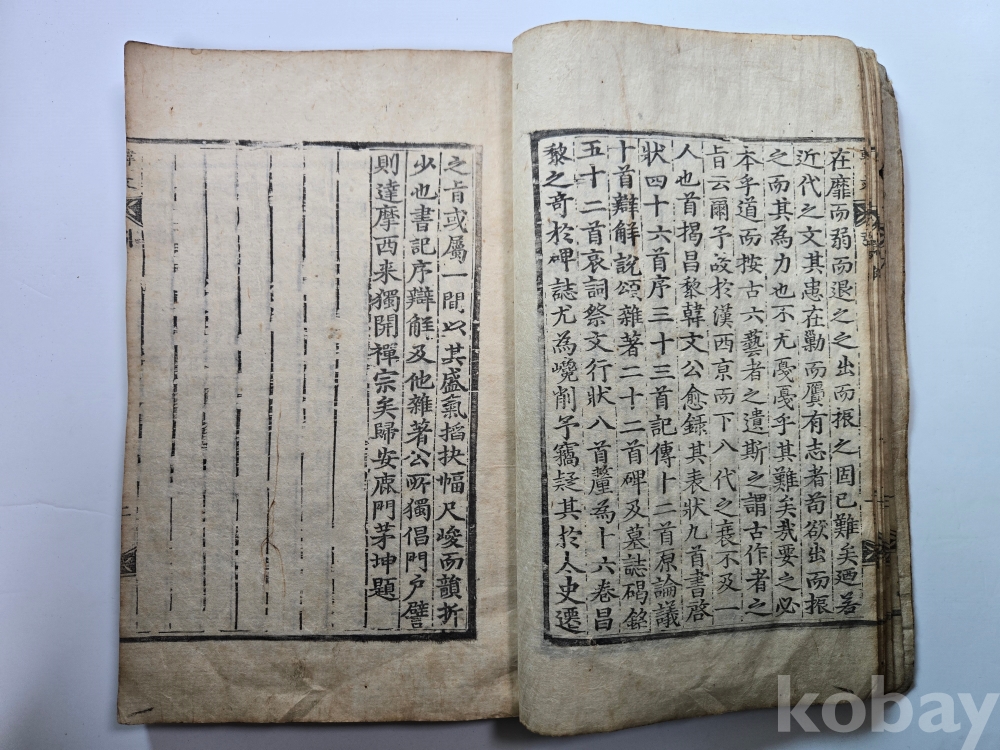 在靡而弱而退之之出而振之固已難矣廼若
近代之文其患在勦而贋有志者苟欲出而振
之而其為力也不尤戞戞乎其難矣哉要之必
本乎道而按古六藝者之遺斯之謂古作者之
旨云爾予故於漢西京而下八代之衰不及一
人也首揭昌黎韓文公愈錄其表狀九首書啓
狀四十六首序三十三首記傳十二首原論議
十首辯解說頌雜著二十二首碑及墓誌碣銘
五十二首哀詞祭文行狀八首釐為十六卷昌
黎之奇於碑誌尤為巉削予竊疑其於太史遷
之旨或屬一間以其盛氣搯抉幅尺峻而韻折
少也書記序辯解及他雜著公所獨倡門戶譬
則達摩西来獨開禪宗矣歸安鹿門茅坤題
kobay